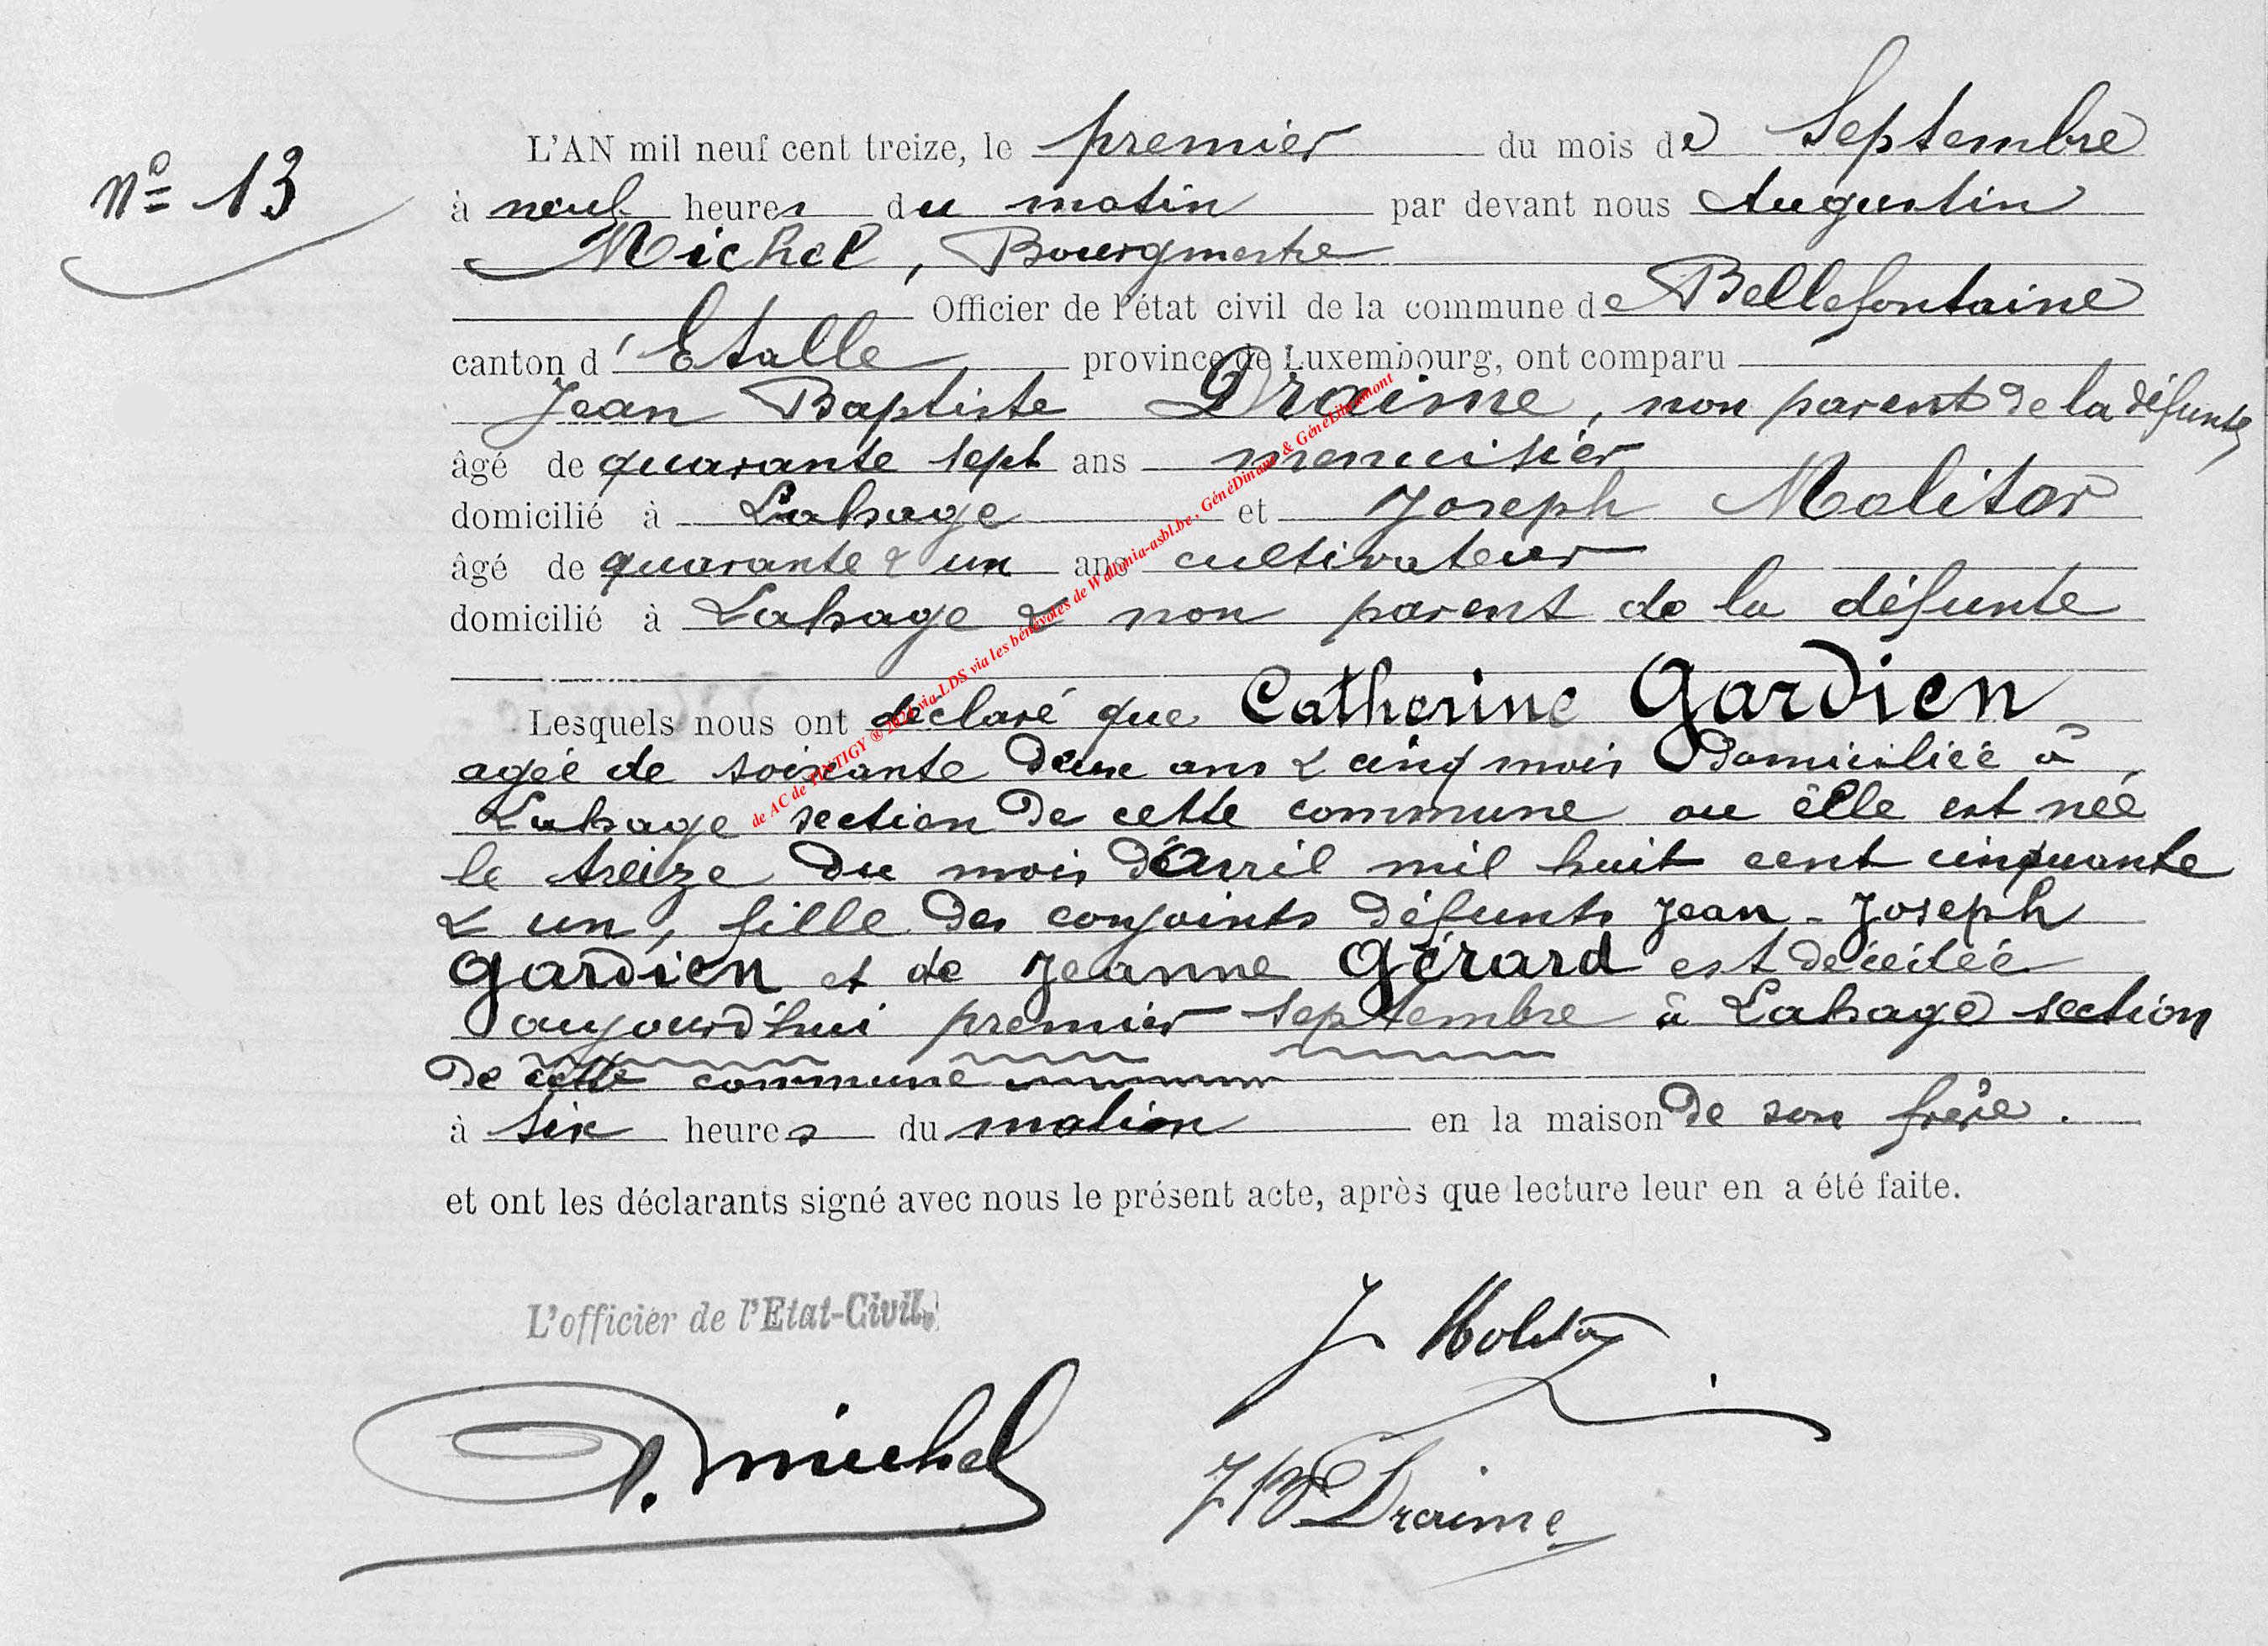 L'AN mil neuf cent treize, le premier du mois de Septembre
nº 13
à neuf heures du matin par devant nous Augustin
Michel, Bourgmestre
Officier de l'état civil de la commune de Bellefontaine
canton d'Etalle province de Luxembourg, ont comparu
Jean Baptiste Draime, non parent de la défunte
âgé de quarante sept ans menuisier
domicilié à Lahage et Joseph Molitor
âgé de quarante & un ans cultivateur
domicilié à Lahage & non parent de la défunte
Lesquels nous ont déclaré que Catherine Gardien
agée de soixante deux ans & cinq mois domiciliée à
Lahage section de cette commune ou elle est née
le treize du mois d'Avril mil huit cent cinquante
& un, fille des conjoints défunts Jean-Joseph
Gardien et de Jeanne Gérard est décédée
aujourd'hui premier septembre à Lahage section
de cette commune
à six heures du matin en la maison de son frère.
et ont les déclarants signé avec nous le présent acte, après que lecture leur en a été faite.
L'officier de l'Etat-Civil,
J Molitor
A. Michel
JB Draime
de AC de TINTIGY ® 2024 via LDS via les bénévoles de Wallonia-asbl.be, GénéDinant & GénéLibramont